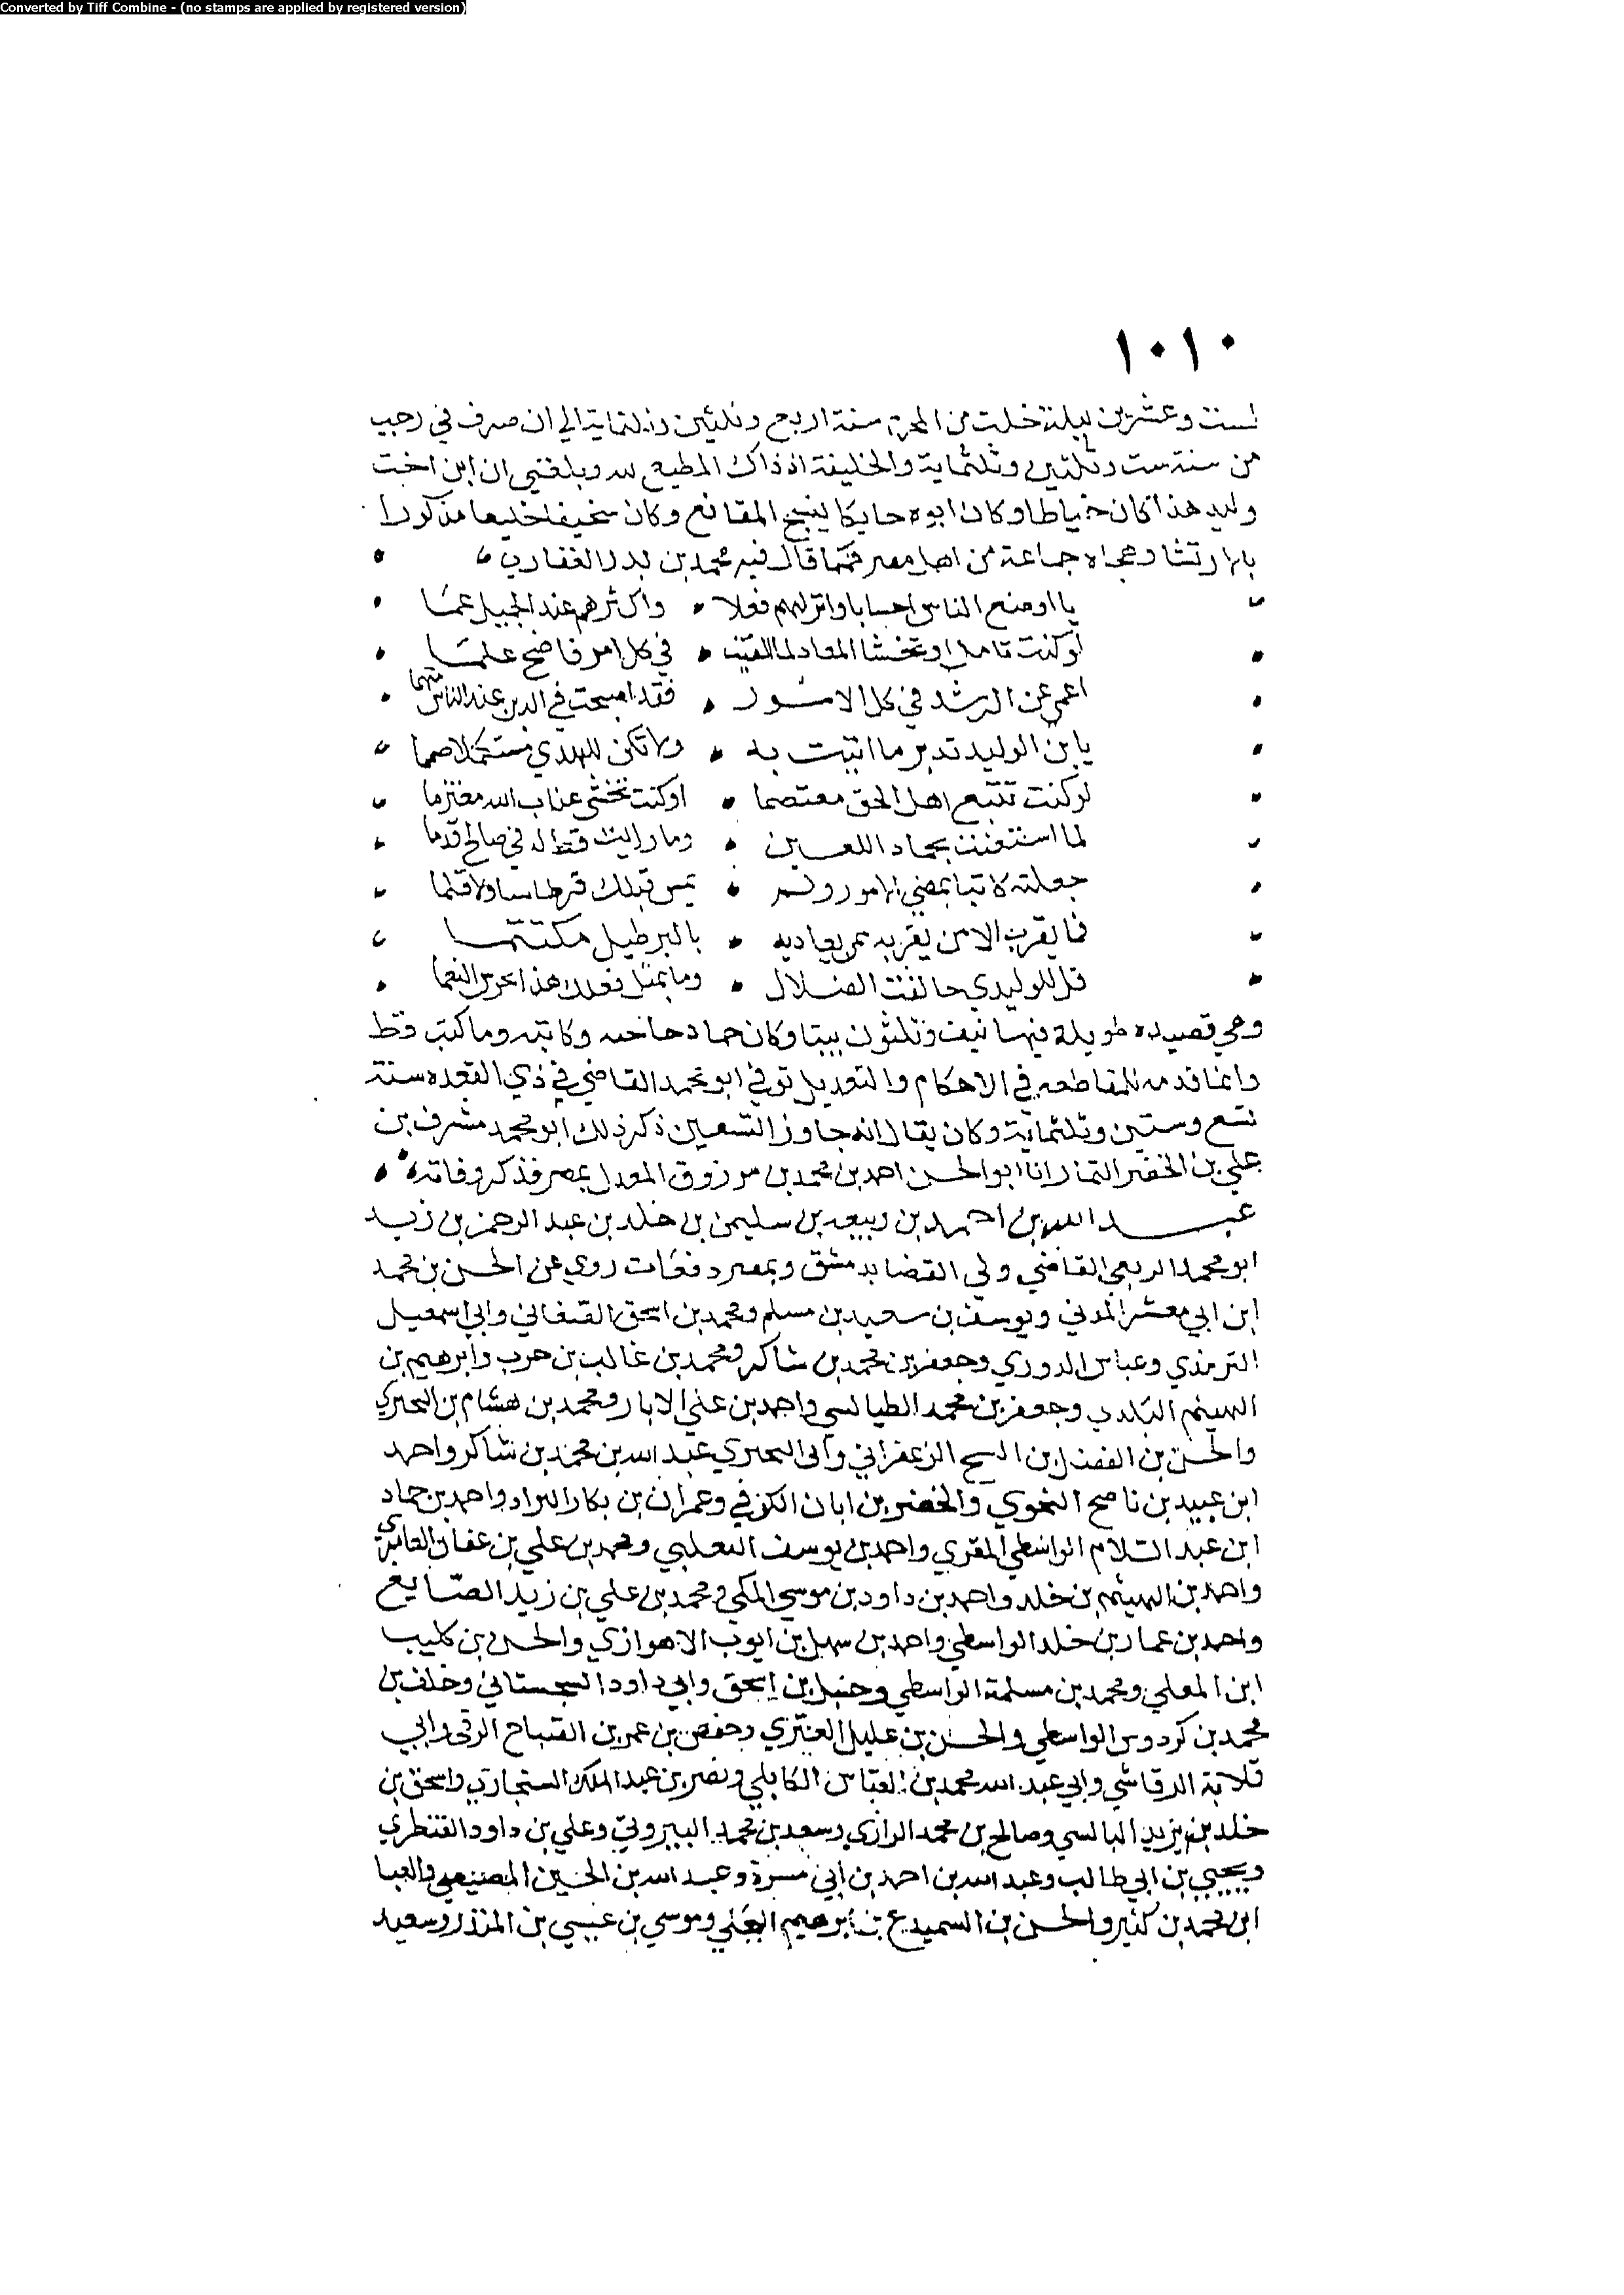 Converted by Tiff Combine - (no stamps are applied by registered version)
١٠١٠
لست وعشرين ليلة خلت من المحرم سنة اربع وثلثين وثلثماية الي ان صرف في رجب
من سنة ست وثلثين وثلثماية والخليفة اذ ذاك المطيع لله وبلغني ان ابن اخت
وليد هذا كان خياطا وكان ابوه حايكا ينسج المقانع وكان سخيفا خليعا مذكورا
بالارتشا وهجاه جماعة من اهل مصر فمما قال فيه محمد بن بدر الغفاري
يا اوضع الناس احسابا وانزلهم فعلا واكثرهم عند الجميل عما
لو كنت تامل او تخشا المعاد لما في كل امر فاضح علما
اعمي عن الرشد في كل الامور فقد اصبحت في الدين عند الناس متهما
يابن الوليد تدبر ما اتيت به ولا تكن للهدي مستكملا صمما
لو كنت تتبع اهل الحق معتصما او كنت تخشي عذاب الله معتزما
لما استعنت بحماد اللعين وما رايت قط له في صالح قدما
جعلته كاتبا يمضي الامور ولم يمس قبلك قرطاسا ولا قلما
فما يقرب الا من يقربه ممن يعاديه بالبرطيل مكتتما
قل للوليدي حالفت الضلال وما بمثل فعلك هذا تحرس النعما
وهي قصيده طويلة فيها نيف وثلثون بيتا وكان حماد حاجبه وكاتبه وما كتب قط
وانما قدمه للمقاطعه في الاحكام والتعديل توفي ابو محمد القاضي في ذي القعده سنة
تسع وستين وثلثماية وكان يقال انه جاوز التسعين ذكر ذلك ابو محمد مشرف بن
علي بن الخضر التمار انا ابو الحسن احمد بن محمد بن مرزوق المعدل بمصر فذكر وفاته
عبد الله بن احمد بن ربيعه بن سليمن بن خلد بن عبد الرحمن بن زيد
ابو محمد الربعي القاضي ولي القضا بدمشق وبمصر دفعات روي عن الحسن بن محمد
ابن ابي معشر المدني ويوسف بن سعيد بن مسلم ومحمد بن اسحق الصغاني وابي اسمعيل
الترمذي وعباس الدوري وجعفر بن محمد بن شاكر ومحمد بن غالب بن حرب وابرهيم بن
الهيثم البلدي وجعفر بن محمد الطيالسي واحمد بن علي الابار ومحمد بن هشام بن البختري
والحسن بن الفضل بن السمح الزعفراني وابي البختري عبد الله بن محمد بن شاكر واحمد
ابن عبيد بن ناصح النحوي والخضر بن ابان الكوفي وعمران بن بكار البراد واحمد بن حماد
ابن عبد السلام الواسطي المقري واحمد بن يوسف التغلبي ومحمد بن علي بن عفان العامري
واحمد بن الهيثم بن خلد واحمد بن داود بن موسي المكي ومحمد بن علي بن زيد الصايغ
واحمد بن عمار بن خلد الواسطي واحمد بن سهل بن ايوب الاهوازي والحسن بن كليب
ابن المعلي ومحمد بن مسلمة الواسطي وحنبل بن اسحق وابي داود السجستاني وخلف بن
محمد بن كردوس الواسطي والحسن بن عليل العنزي وحفص بن عمر بن الصباح الرقي وابي
قلابة الرقاشي وابي عبد الله محمد بن العباس الكابلي ونصر بن عبد الملك السنجاري واسحق بن
خلد بن يزيد البالسي وصالح بن محمد الرازي وسعد بن محمد البيروتي وعلي بن داود القنطري
ويحيي بن ابي طالب وعبد الله بن احمد بن ابي مسرة وعبد الله بن الحسين المصيصي والعبا
ابن محمد بن كثير والحسن بن السميدع بن ابرهيم البجلي وموسي بن عيسي بن المنذر وسعيد